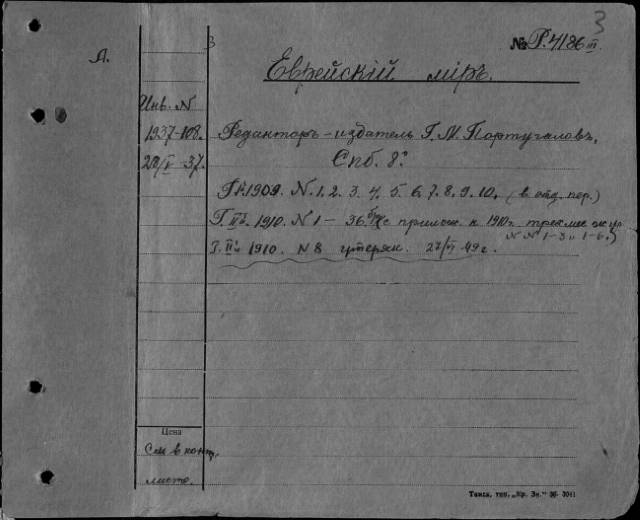 3
№ Р.4186 III
Л.
3
Еврейскій міръ.
Инв. N
1937-108.
28/V-37.
Редакторъ-издатель Г. М. Португаловъ,
Спб. 8°
Г. I. 1909. N. 1. 2. 3. 4. 5. 6. 7. 8. 9. 10. (в отд. пер.)
Г. II. 1910. N 1 – 36 с прилож. к 1910г.
N N 1-3 1-6.)
Г. II. 1910. N 8 утерян. 27/VI 49 г.
Цена
См в конт.
листе.
Тинск. тип. „Кр. Зн." 36- 3041